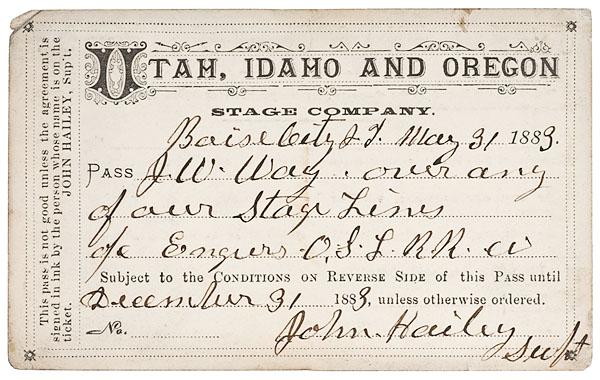 This pass is not good unless the agreement is
signed in ink by the person whose name is on the
ticket. JOHN HAILEY, Sup't.
UTAH, IDAHO AND OREGON
STAGE COMPANY.
Boise City I.T. May 31 1883.
PASS J. W. Way. over any
of our Stage Lines
a/c Engnrs O.S.L. RR. co
Subject to the CONDITIONS ON REVERSE SIDE of this Pass until
December 31 1883, unless otherwise ordered.
No.
John Hailey
Supt